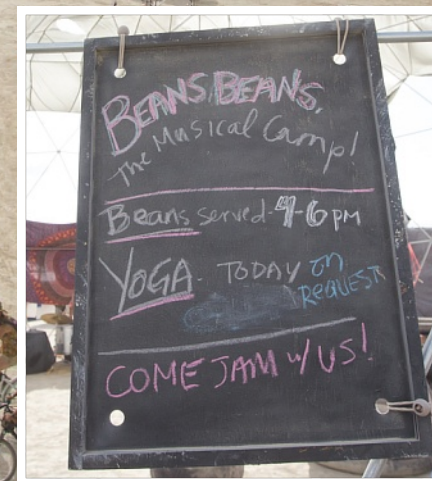 BEANS, BEANS,
The Musical Camp!
Beans served - 4-6 PM
YOGA - TODAY on
REQUEST
COME JAM w/ US!